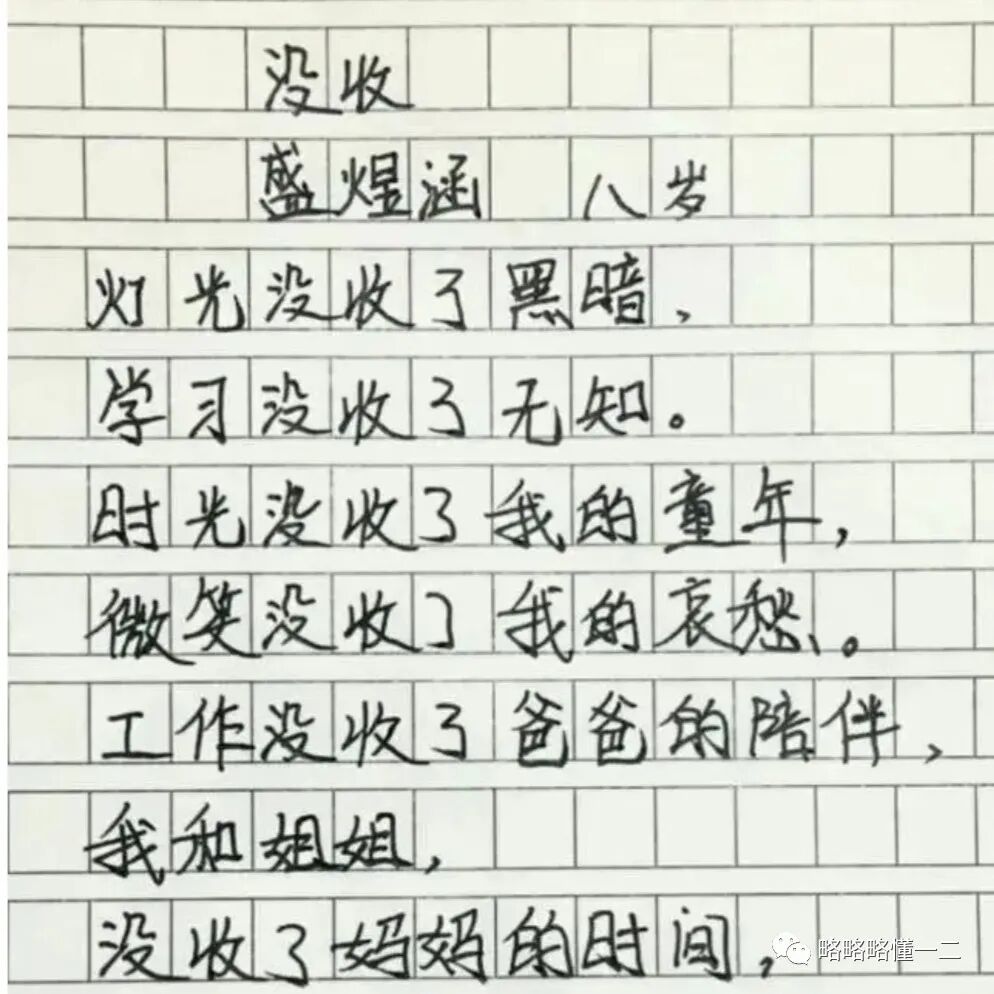 没收
盛煜涵 八岁
灯光没收了黑暗，
学习没收了无知。
时光没收了我的童年，
微笑没收了我的哀愁。
工作没收了爸爸的陪伴，
我和姐姐，
没收了妈妈的时间，
略略略懂一二